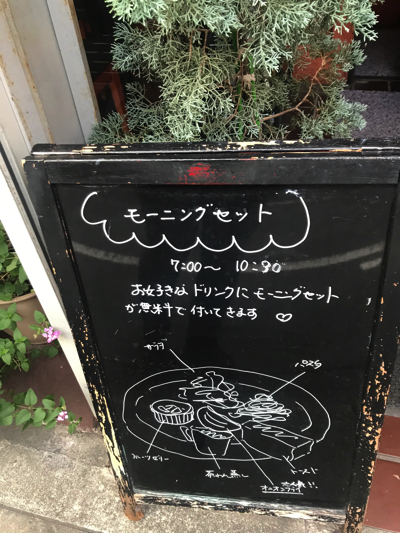 モーニングセット
7:00〜 10:30
お好きな ドリンクに モーニングセット
が無料で付いてきます ♡
サラダ
パスタ
フルーツゼリー
茶わん蒸し
トースト
オニオンフライ